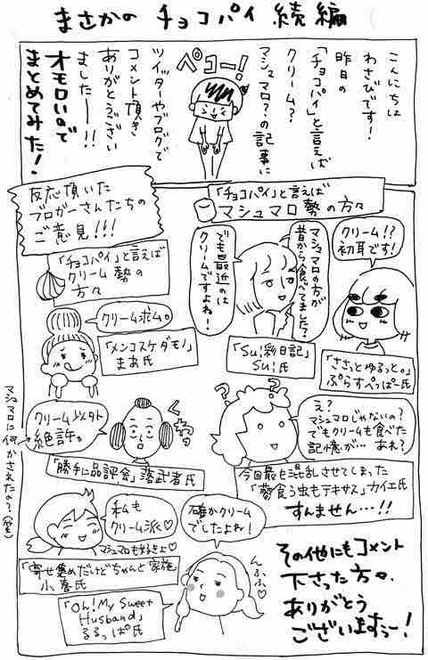 まさかの チョコパイ 続編
こんにちは
わさびです!
昨日の
「チョコパイ」と言えば
クリーム?
マシュマロ?の記事に
ペコー!
ツイッターやブログで
コメント頂き
ありがとうござい
ましたーー!!
オモロいので
まとめてみた!
反応頂いた
ブロガーさんたちの
ご意見!!!
「チョコパイ」と言えば
マシュマロ勢の方々
クリーム!?
初耳です!
「ささっとゆるっと。」
ぷらすぺっぱー氏
マシュマロの方が
昔から食べてました?
でも最近のは
クリームですよね!
「Su彩日記」
Su氏
え?
マシュマロじゃないの?
でもクリームも食べた
記憶が… あれ?
今回最も混乱させてしまった
「蓼食う虫もテキサス」カイエ氏
すんません…!!
「チョコパイ」と言えば
クリーム勢の
方々
クリーム求ム。
「メンコスケダモノ」
まあ氏
クリーム以外
絶許。
くわっ
「勝手に品評会」落武者氏
マシュマロに何かされたの?(笑)
私も
クリーム派〜♡
マシュマロも好きよ♡
「寄せ集めだけどちゃんと家族」
小春氏
確かクリーム
でしたよね!
んふふ♡
「Oh! My Sweet
Husband」
るるっぱ氏
その他にもコメント
下さった方々、
ありがとう
ございますぅー!